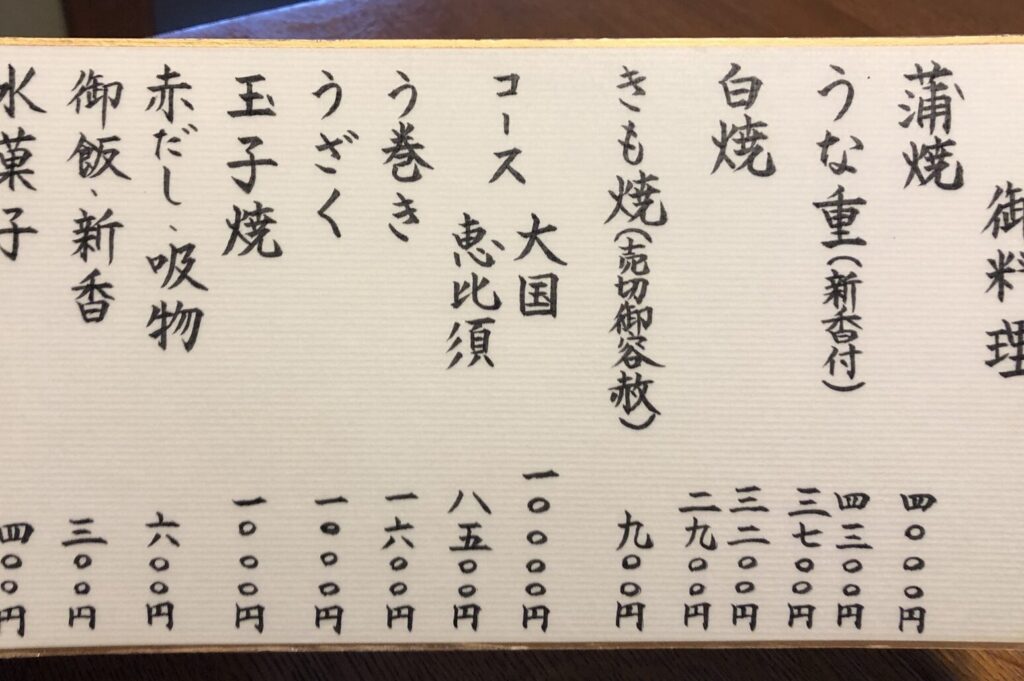 御料理
蒲焼 四〇〇〇円
うな重(新香付) 四三〇〇円
三七〇〇円
白焼 三二〇〇円
二九〇〇円
きも焼(売切御容赦) 九〇〇円
コース 大国 一〇〇〇〇円
恵比須 八五〇〇円
う巻き 一六〇〇円
うざく 一〇〇〇円
玉子焼 一〇〇〇円
赤だし、吸物 六〇〇円
御飯、新香 三〇〇円
水菓子 四〇〇円